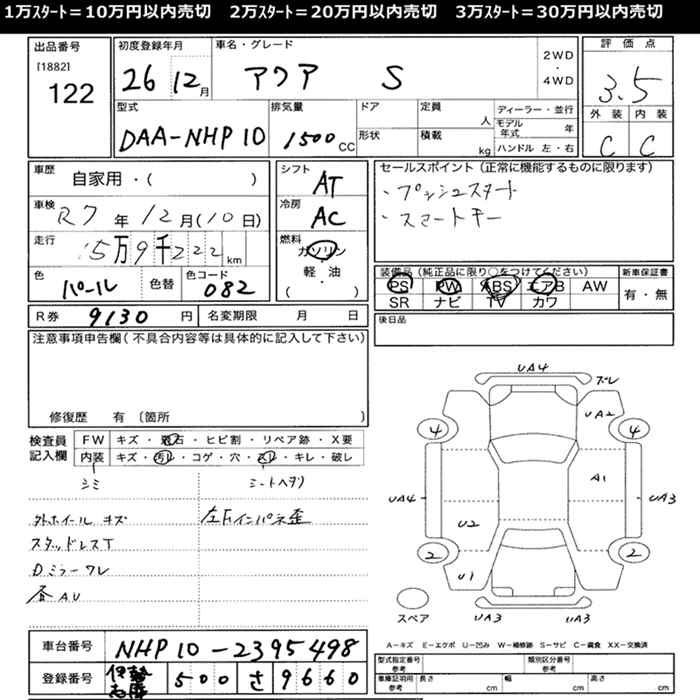 1万スタート=10万円以内売切 2万スタート=20万円以内売切 3万スタート=30万円以内売切
出品番号 [1882] 122
初度登録年月 26 12月
車名・グレード アクア S
2WD・4WD
評価点 3.5
外装 C 内装 C
型式 DAA-NHP10
排気量 1500cc
ドア 形状
定員 人
積載 kg
ディーラー・並行
モデル年式 年
ハンドル 左・右
車歴 自家用・( )
車検 R7年12月(10日)
走行 15万9千222km
色 パール 色替 色コード 082
シフト AT
冷房 AC
燃料 ガソリン・軽油
( )
セールスポイント(正常に機能するものに限ります)
・プッシュスタート
・スマートキー
装備品(純正品に限り○をつけてください)
PS PW ABS エアB AW
SR ナビ TV カワ
新車保証書 有・無
後日品
R券 9130円 名変期限 月 日
注意事項申告欄(不具合内容等は具体的に記入して下さい)
修復歴 有〔箇所 〕
検査員記入欄
FW キズ・飛石・ヒビ割・リペア跡・X要
内装 キズ・汚レ・コゲ・穴・スレ・キレ・破レ
シミ シートヘタリ
外ホイールキズ 左Fインパネ歪
スタッドレスT
Dミラーワレ
各AU
UA4 ズレ
UA2
4 4
A1
UA4 UA3
U2
2 2
U1
スペア
UA3 UA3
A-キズ E-エクボ U-凹み W-補修跡 S-サビ C-腐食 XX-交換済
車台番号 NHP10-2395498
登録番号 伊勢志摩 500 さ 9660
型式指定番号 参考 類別区分番号 参考
車庫証明用 参考 長さ cm 幅 cm 高さ cm